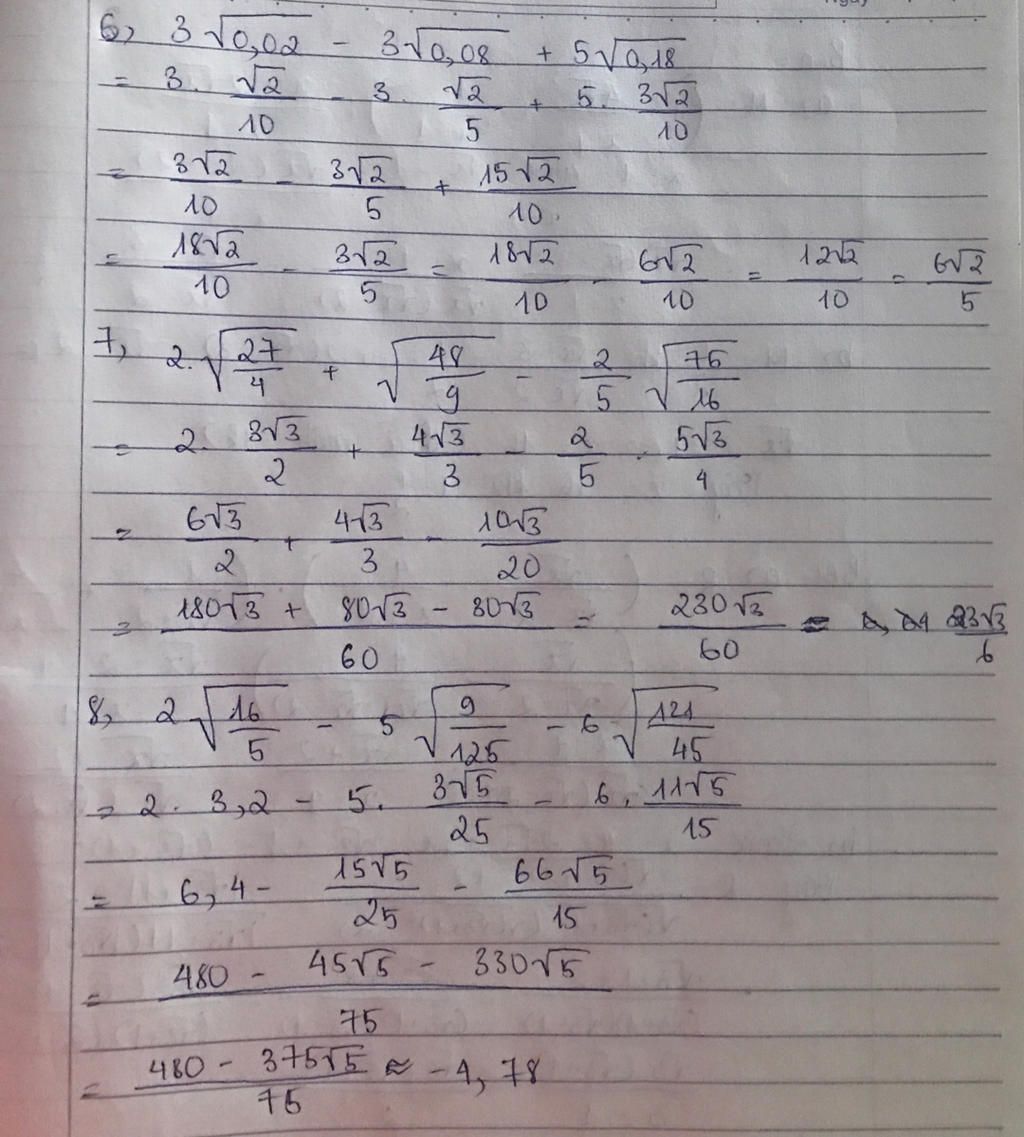 6, 3√0,02 - 3√0,08 + 5√0,18
= 3. √2/10 - 3. √2/5 + 5. 3√2/10
= 3√2/10 - 3√2/5 + 15√2/10
= 18√2/10 - 3√2/5 = 18√2/10 - 6√2/10 = 12√2/10 = 6√2/5
7, 2.√(27/4) + √(48/9) - 2/5 √(75/16)
= 2. 3√3/2 + 4√3/3 - 2/5 . 5√3/4
= 6√3/2 + 4√3/3 - 10√3/20
= (180√3 + 80√3 - 30√3)/60 = 230√3/60 = 23√3/6
8, 2√(16/5) - 5√(9/125) - 6√(121/45)
= 2. 3,2 - 5. 3√5/25 - 6. 11√5/15
= 6,4 - 15√5/25 - 66√5/15
= (480 - 45√5 - 330√5)/75
= (480 - 375√5)/75 ≈ -4,78